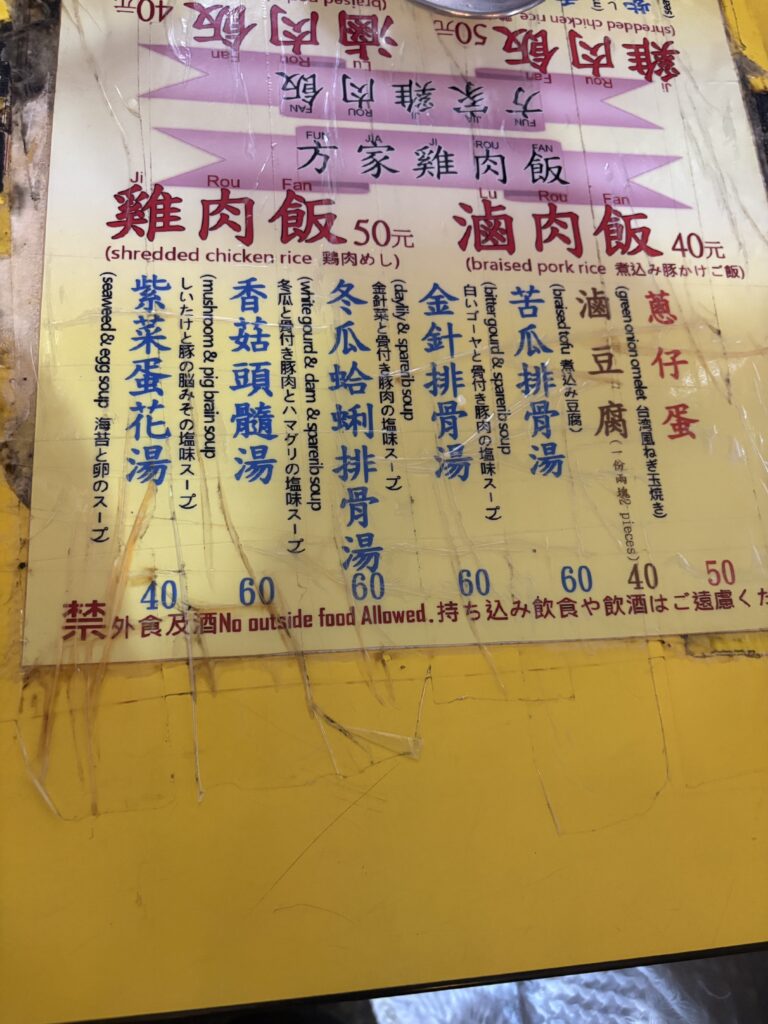 FUN JIA JI ROU FAN
方家雞肉飯
Ji Rou Fan
雞肉飯 50元
(shredded chicken rice 鶏肉めし)
Lu Rou Fan
滷肉飯 40元
(braised pork rice 煮込み豚かけご飯)
蔥仔蛋
(green onion omelet 台湾風ねぎ玉焼き)
50
滷豆腐(一份兩塊 pieces)
(braised tofu 煮込み豆腐)
40
苦瓜排骨湯
(bitter gourd & sparerib soup
白いゴーヤと骨付き豚肉の塩味スープ)
60
金針排骨湯
(daylily & sparerib soup
金針菜と骨付き豚肉の塩味スープ)
60
冬瓜蛤蜊排骨湯
(white gourd & clam & sparerib soup
冬瓜と骨付き豚肉とハマグリの塩味スープ)
60
香菇頭髓湯
(mushroom & pig brain soup
しいたけと豚の脳みその塩味スープ)
60
紫菜蛋花湯
(seaweed & egg soup 海苔と卵のスープ)
40
禁外食及酒No outside food Allowed.持ち込み飲食や飲酒はご遠慮くだ
FUN JIA JI ROU FAN
方家雞肉飯
Ji Rou Fan
雞肉飯 50元
(shredded chicken rice
Lu Rou Fan
滷肉飯 40元
(braised